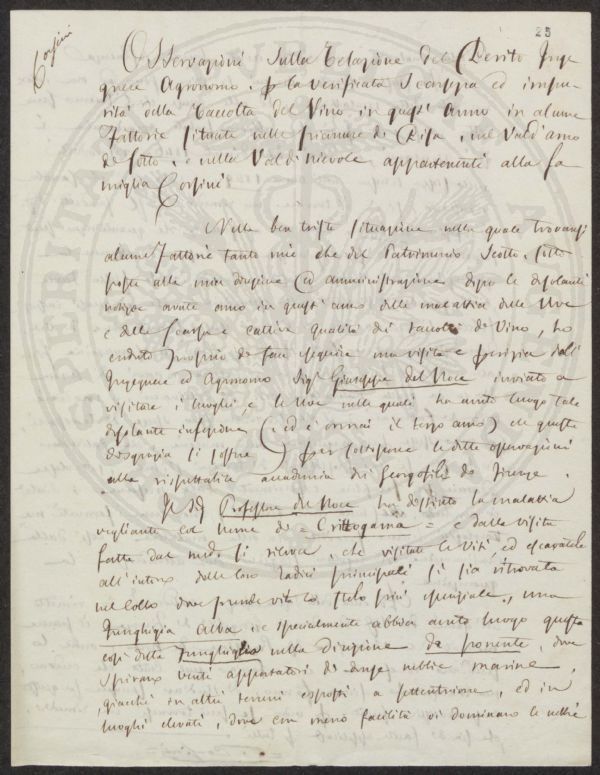 25
Corsini
Osservazioni sulla Relazione del Perito Inge
gnere Agronomo. p la verificata scarsezza ed impu
rità della Raccolta del Vino in quest' Anno in alcune
Fattorie situate nelle vicinanze di Pisa, nel Vald'arno
di sotto, e nella Val di nievole appartenenti alla fa
miglia Corsini
Nella ben trista situazione nella quale trovansi
alcune Fattorie tanto mie che del Patrimonio Scotto, sotto
poste alla mia direzione ed amministrazione dopo le desolanti
notizie avute anco in quest' anno della malattia delle Uve
e della scarsa e cattiva qualità dei raccolti di Vino, ho
creduto proprio di fare eseguire una visita e perizia dall'
Ingegnere ed Agronomo Sigr Giuseppe del Noce inviato a
visitare i luoghi, e le Uve nelle quali ha avuto luogo tale
desolante infezione (ed è ormai il terzo anno) che questa
disgrazia si soffre) per sottoporre le dette osservazioni
alla rispettabile accademia dei Georgofili di Firenze.
Il Sig Professore del Noce ha destinto la malattia
vegliante col nome di = Crittogama = e dalle visite
fatte dal med si rileva, che visitate le Viti, ed escavatele
all' intorno delle loro radici principali si sia ritrovata
nel collo dove prende vita lo stelo più, una
Funghigia Alba, e specialmente abbia avuto luogo questa
così detta Funghiglia nella direzione di ponente, dove
spirano venti apportatori di dense nebbie marine,
giacchè in altri terreni esposti a settentrione, ed in
luoghi elevati, dove con meno facilità vi dominano le nebbie